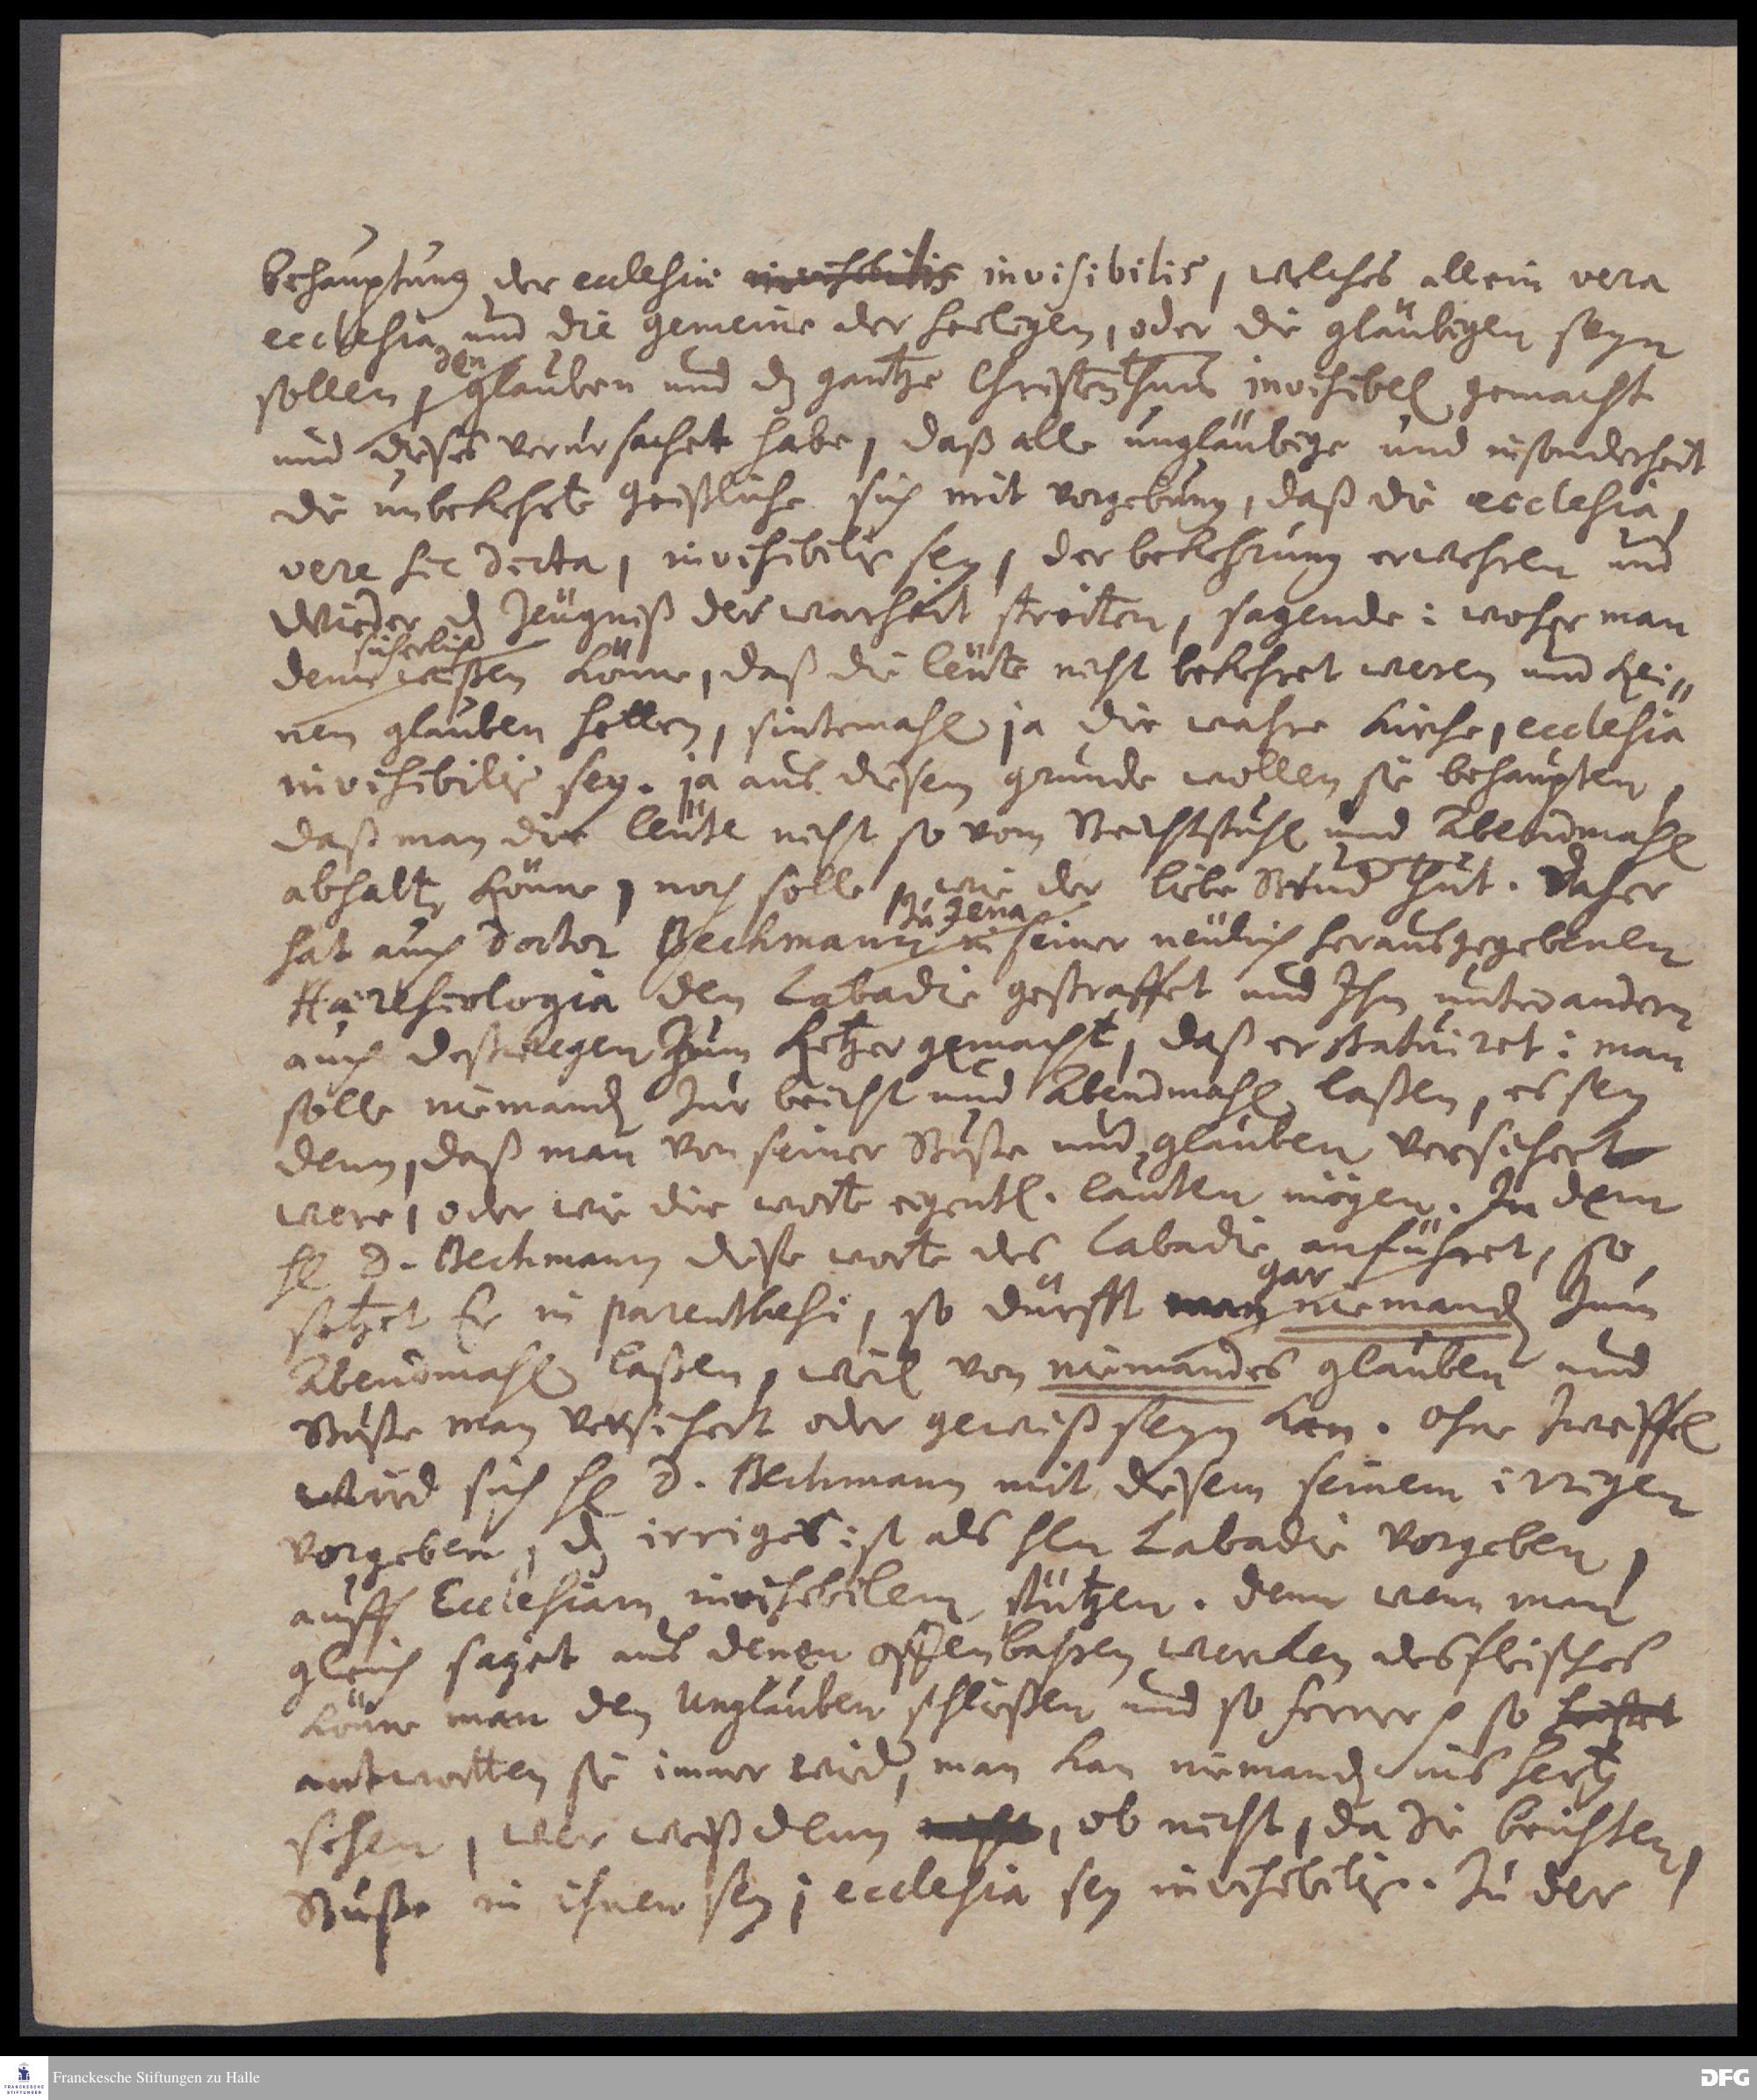 behauptung der ecclesiae invisibilis invisibilis, welches allein vera
ecclesia und die gemeine der heiligen, oder die gläubigen seyn
sollen, den glauben und dz gantze Christenthum invisibel gemacht
und dieses verursachet habe, daß alle ungläubige und insonderheit
die unbekehrte Geistliche sich mit vorgebung, daß die ecclesia,
vere sic dicta, invisibilis sey, der bekehrung erwehren und
wieder dz Zeugniß der warheit streiten, sagende: woher man
denn sicherlich wißen könne, daß die leüte nicht bekehret weren und kei=
nen glauben hetten, sintemahl ja die wahre Kirche, ecclesia
invisibilis sey. ja aus diesem grunde wollen sie behaupten,
daß man die leüte nicht so vom Beichtstuhl und Abendmahl
abhalten könne, noch solle, wie der liebe Bruder thut. Daher
hat auch Doctor Bechmann zu Jena in seiner neülich herausgegebenen
Haeresiologia den Labadie gestraffet und Ihn unter andern
auch deßwegen zum Ketzer gemacht, daß er statuiret: man
solle niemand zur beicht und Abendmahl laßen, es sey
denn, daß man von seiner Buße und glauben versichert
were, oder wie die worte eigentl. lauten mögen. In dem
H D. Bechmann diese worte des Labadie anführet, so
setzet Er in parenthesi, so dürfft man gar niemand zum
Abendmahl laßen, weil von niemandes glauben und
Buße man versichert oder gewiß seyn kan. Ohne Zweiffel
wird sich H D. Bechmann mit diesem seinem irrigen
vorgeben, dz irriger ist als Hln Labadie vorgeben,
auff Ecclesiam invisibilem stützen. Denn wenn man
gleich saget aus denen offenbahren wercken des fleisches
könne man den Unglauben schließen und so ferner, so
antwortten sie immer wied, man kan niemand ins hertz
sehen, wer weiß denn nicht, ob nicht, da sie beichten,
Buße in ihnen sey; ecclesia sey invisibilis. Zu der
Franckesche Stiftungen zu Halle
FRANCKESCHE STIFTUNGEN
DFG